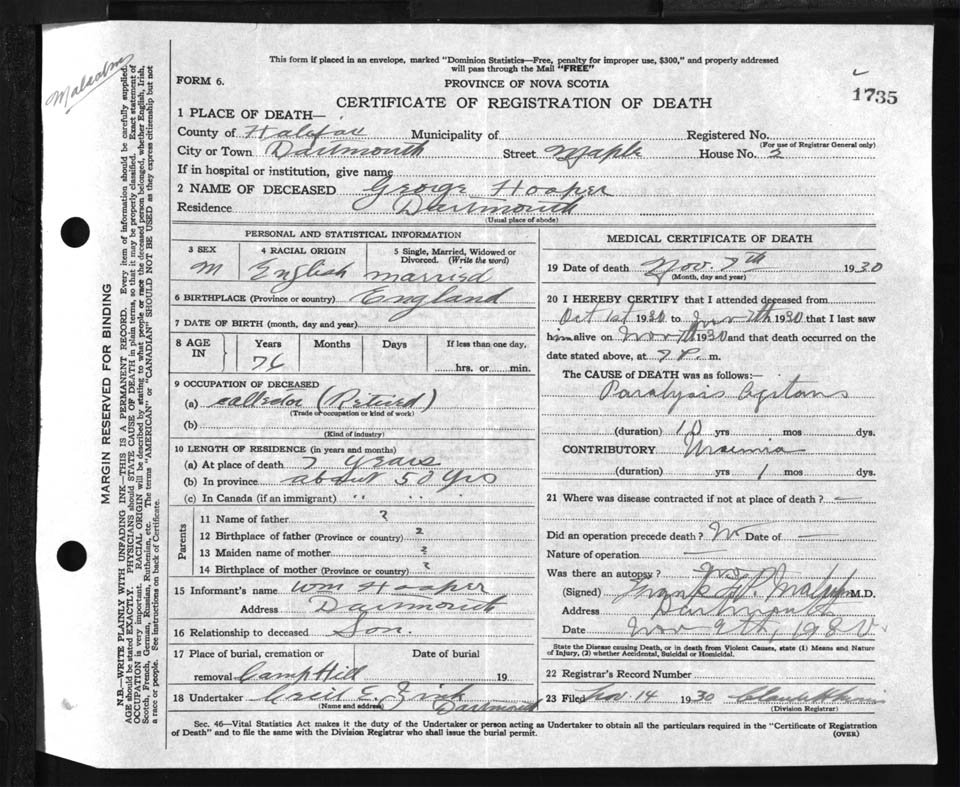 Malcolm
This form if placed in an envelope, marked "Dominion Statistics—Free, penalty for improper use, $300," and properly addressed
will pass through the Mail "FREE"
FORM 6.
PROVINCE OF NOVA SCOTIA
1735
CERTIFICATE OF REGISTRATION OF DEATH
1 PLACE OF DEATH—
County of Halifax Municipality of Registered No.
(For use of Registrar General only)
City or Town Dartmouth Street Maple House No. 2
If in hospital or institution, give name
2 NAME OF DECEASED George Hooper
Residence Dartmouth
(Usual place of abode)
PERSONAL AND STATISTICAL INFORMATION
3 SEX 4 RACIAL ORIGIN 5 Single, Married, Widowed or
Divorced. (Write the word)
M English married
6 BIRTHPLACE (Province or country) England
7 DATE OF BIRTH (month, day and year)
8 AGE IN Years Months Days If less than one day,
76 hrs. or min.
9 OCCUPATION OF DECEASED
(a) collector (Retired)
(Trade or occupation or kind of work)
(b)
(Kind of industry)
10 LENGTH OF RESIDENCE (in years and months)
(a) At place of death 7 years
(b) In province about 50 yrs
(c) In Canada (if an immigrant) " "
Parents
11 Name of father ?
12 Birthplace of father (Province or country) ?
13 Maiden name of mother ?
14 Birthplace of mother (Province or country) ?
15 Informant's name Wm Hooper
Address Dartmouth
16 Relationship to deceased Son.
17 Place of burial, cremation or Date of burial
removal Camp Hill 19
18 Undertaker Cecil E. Zink
(Name and address) Dartmouth
MEDICAL CERTIFICATE OF DEATH
19 Date of death Nov. 7th 1930
(Month, day and year)
20 I HEREBY CERTIFY that I attended deceased from
Oct 1st 1930 to Nov 7th 1930 that I last saw
him alive on Nov 7th 1930 and that death occurred on the
date stated above, at P. m.
The CAUSE of DEATH was as follows:—
Paralysis Agitans
(duration) 10 yrs mos dys.
CONTRIBUTORY Uraemia
(duration) yrs 1 mos dys.
21 Where was disease contracted if not at place of death? —
Did an operation precede death? No Date of —
Nature of operation —
Was there an autopsy? No
(Signed) Frank M.D.
Address Dartmouth
Date Nov 9th, 1930
State the Disease causing Death, or in death from Violent Causes, state (1) Means and Nature
of Injury, (2) whether Accidental, Suicidal or Homicidal.
22 Registrar's Record Number
23 Filed Nov. 14 1930
(Division Registrar)
Sec. 46—Vital Statistics Act makes it the duty of the Undertaker or person acting as Undertaker to obtain all the particulars required in the "Certificate of Registration
of Death" and to file the same with the Division Registrar who shall issue the burial permit.
(OVER)
MARGIN RESERVED FOR BINDING
N.B.—WRITE PLAINLY WITH UNFADING INK—THIS IS A PERMANENT RECORD. Every item of information should be carefully supplied.
AGE should be stated EXACTLY. PHYSICIANS should STATE CAUSE OF DEATH in plain terms, so that it may be properly classified. Exact statement of
OCCUPATION is very important. RACIAL ORIGIN will be described by stating to what people or race the deceased person belonged, whether English, Irish,
Scotch, French, German, Russian, Ruthenian, etc. The terms "AMERICAN" or "CANADIAN" SHOULD NOT BE USED as they express citizenship but not
a race or people. See instructions on back of Certificate.